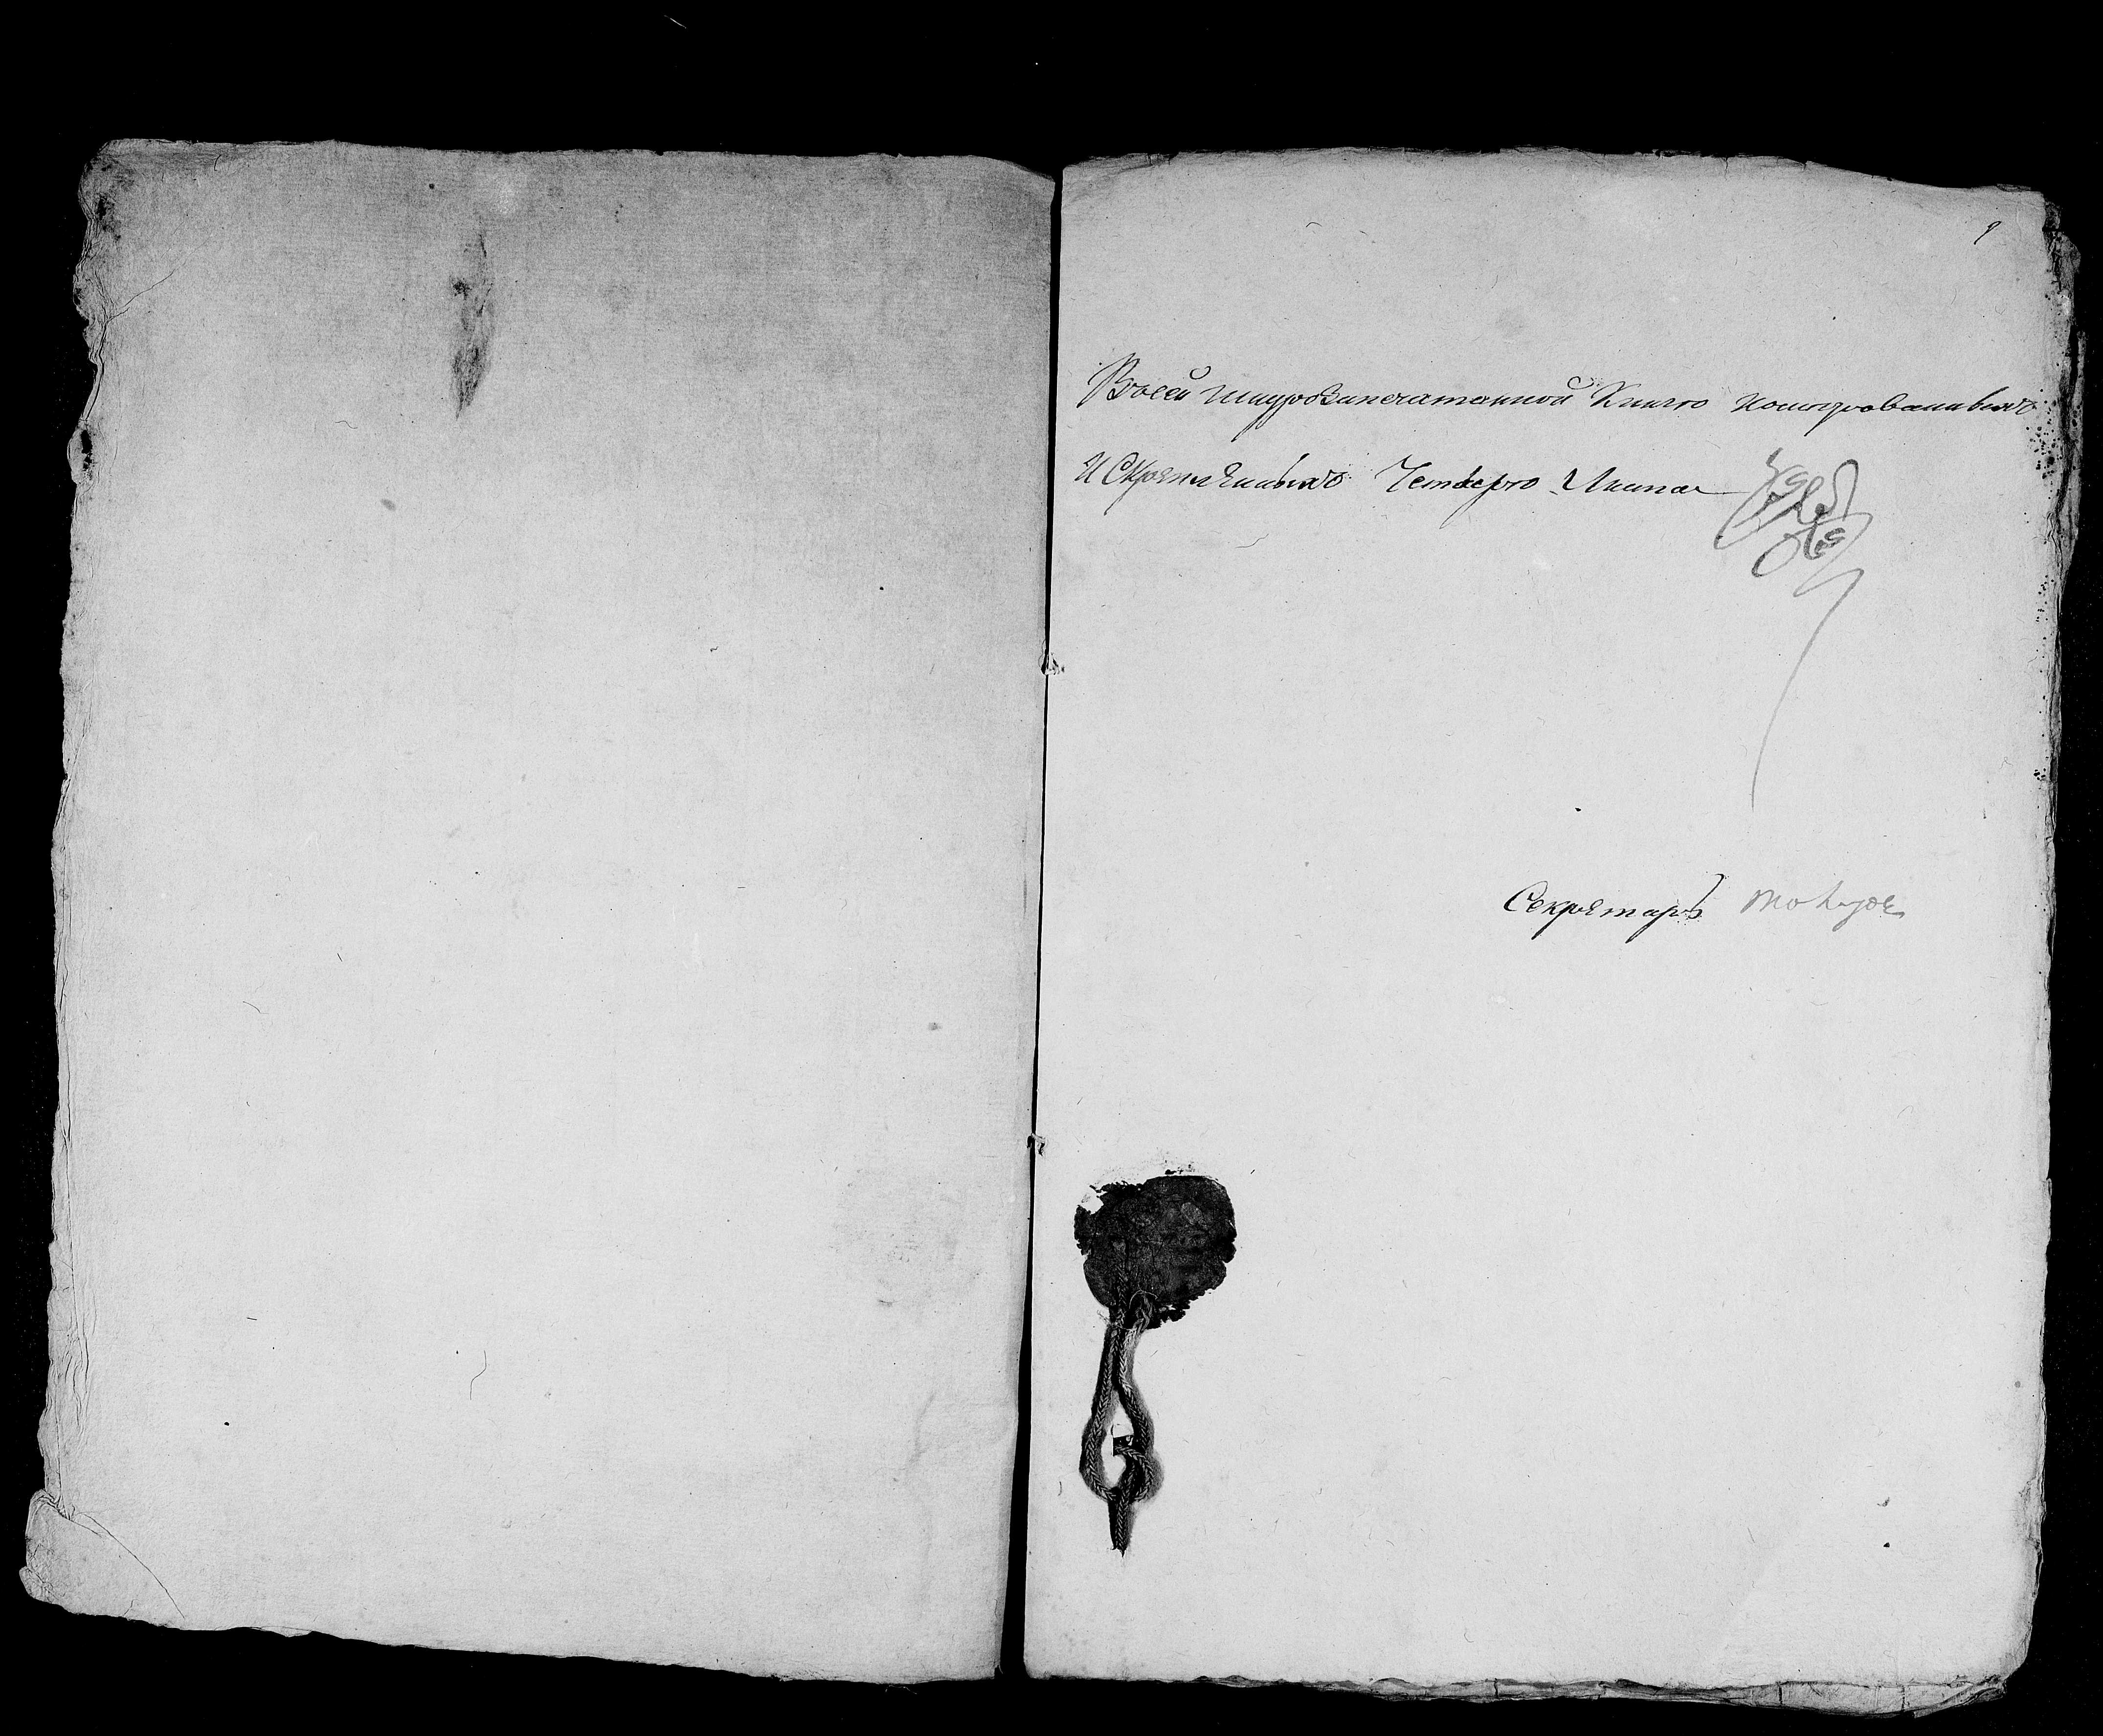 9
Въсей шнурозапечатанной Книге номерованныхъ
И Скрепленныхъ Четыре Листа
Секретарь